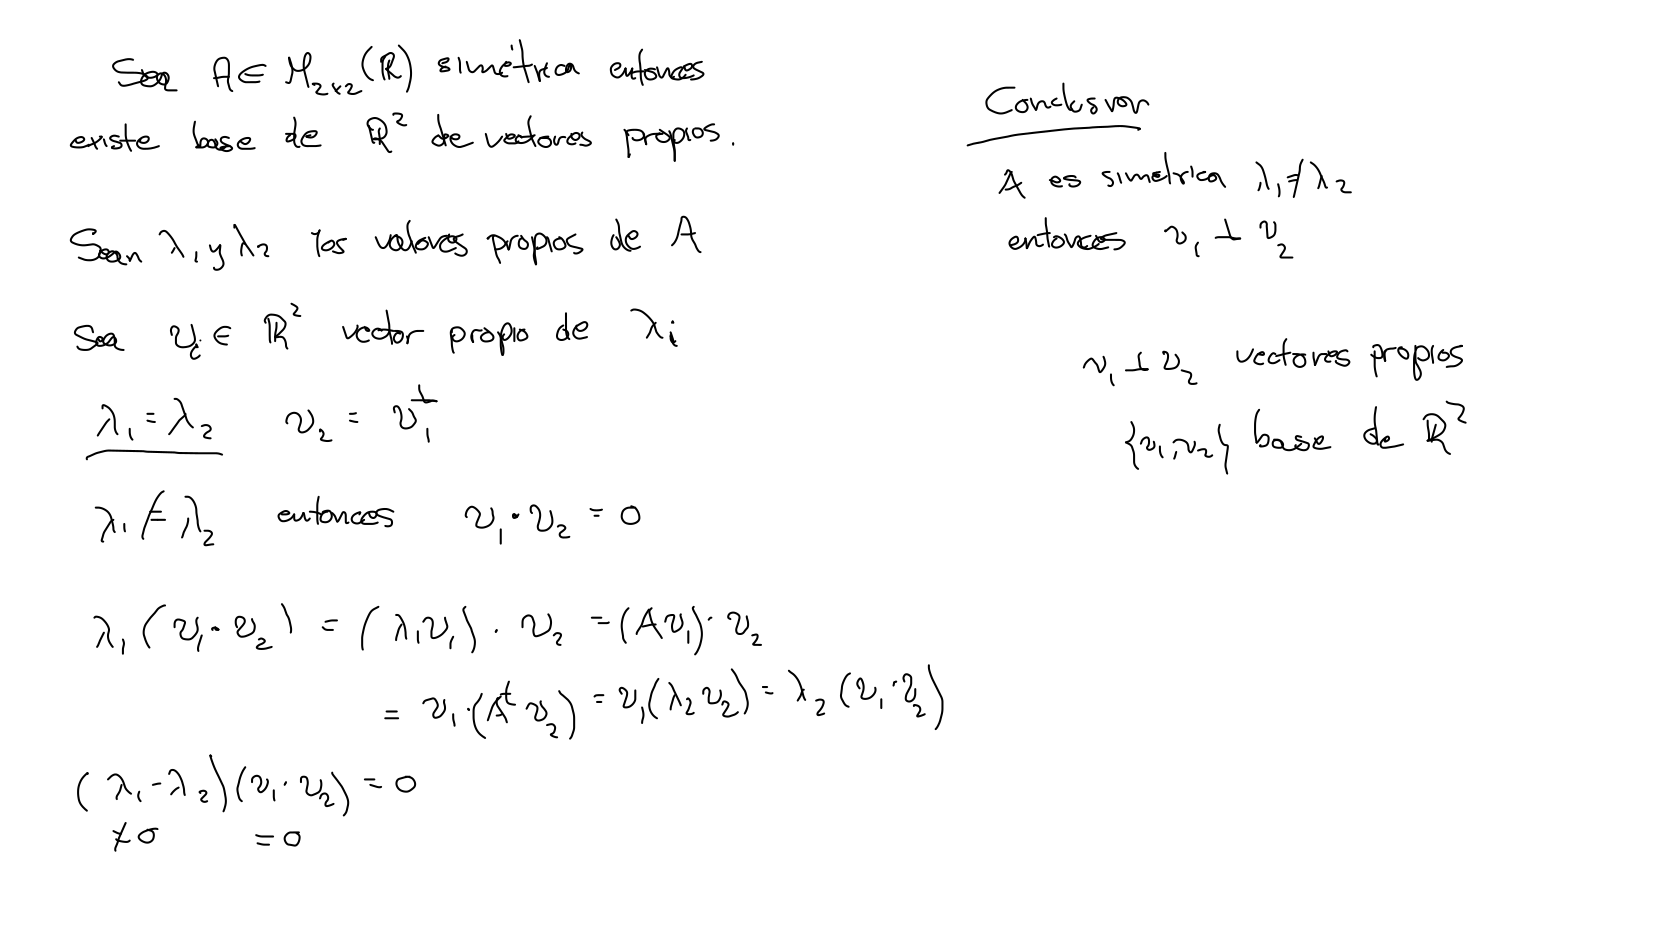 Sea A ∈ M₂ₓ₂(ℝ) simétrica entonces
existe base de ℝ² de vectores propios.
Sean λ₁ y λ₂ los valores propios de A
Sea vᵢ ∈ ℝ² vector propio de λᵢ
λ₁ = λ₂ v₂ = v₁^⊥
λ₁ ≠ λ₂ entonces v₁ · v₂ = 0
λ₁ (v₁ · v₂) = (λ₁v₁) · v₂ = (Av₁) · v₂
= v₁ · (Aᵗ v₂) = v₁(λ₂ v₂) = λ₂ (v₁ · v₂)
(λ₁ - λ₂)(v₁ · v₂) = 0
≠0 =0
Conclusion
A es simetrica λ₁ ≠ λ₂
entonces v₁ ⊥ v₂
v₁ ⊥ v₂ vectores propios
{v₁, v₂} base de ℝ²